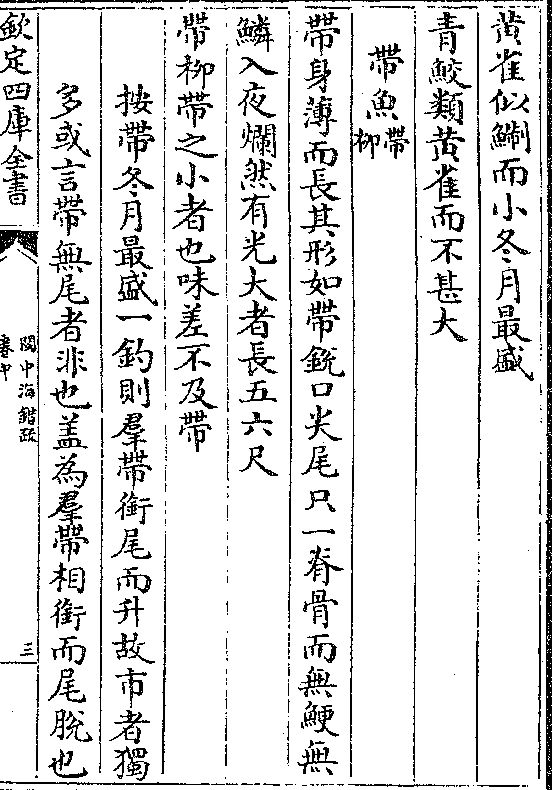 黄雀似鯯而小冬月最盛
青鮫類黄雀而不甚大
帶魚帶柳
帶身薄而長其形如帶銳口尖尾只一脊骨而無鯁無
鱗入夜爛然有光大者長五六尺
帶柳帶之小者也味差不及帶
按帶冬月最盛一釣則羣帶銜尾而升故市者獨
多或言帶無尾者非也盖為羣帶相銜而尾脫也
欽定四庫全書
閩中海錯疏
卷中
三